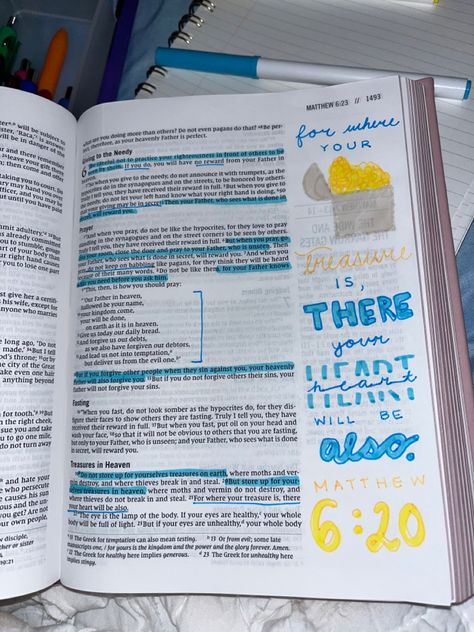 will be subject to
will be in danger of
and there remember
leave your gift
taking you to court. Do
may hand you over
You have heard
ady committed
to stumble,
your right hand
or you to lose one part
ist give her a certifi-
his wife, except for
anyone who marries
le long ago, 'Do not
I tell
d's throne;
the city of the Great
ake even one hair
anything beyond
for tooth.'
the right cheek,
sue you and take
u to go one mile,
do not turn away
and hate your
e who persecute
causes his sun
ous and the un-
ou get? Are not
our own people,
ve disciple,
ther or sister
MATTHEW 6:23 // 1493
what are you doing more than others? Do not even pagans do that? 48 Be per-
fect, therefore, as your heavenly Father is perfect.
Giving to the Needy
6 "Be careful not to practice your righteousness in front of others to be
seen by them. If you do, you will have no reward from your Father in
heaven.
2 "So when you give to the needy, do not announce it with trumpets, as the
hypocrites do in the synagogues and on the streets, to be honored by others.
Truly I tell you, they have received their reward in full. 3 But when you give to
the needy, do not let your left hand know what your right hand is doing, 4 so
that your giving may be in secret. Then your Father, who sees what is done in
secret, will reward you.
Prayer
5 "And when you pray, do not be like the hypocrites, for they love to pray
standing in the synagogues and on the street corners to be seen by others.
Truly I tell you, they have received their reward in full. 6 But when you pray, go
into your room, close the door and pray to your Father, who is unseen. Then
your Father, who sees what is done in secret, will reward you. 7 And when you
pray, do not keep on babbling like pagans, for they think they will be heard
because of their many words. 8 Do not be like them, for your Father knows
what you need before you ask him.
9 "This, then, is how you should pray:
" 'Our Father in heaven,
hallowed be your name,
10 your kingdom come,
your will be done,
on earth as it is in heaven.
11 Give us today our daily bread.
12 And forgive us our debts,
as we also have forgiven our debtors.
13 And lead us not into temptation,a
but deliver us from the evil one.b'
14 For if you forgive other people when they sin against you, your heavenly
Father will also forgive you. 15 But if you do not forgive others their sins, your
Father will not forgive your sins.
Fasting
16 "When you fast, do not look somber as the hypocrites do, for they dis-
figure their faces to show others they are fasting. Truly I tell you, they have
received their reward in full. 17 But when you fast, put oil on your head and
wash your face, 18 so that it will not be obvious to others that you are fasting,
but only to your Father, who is unseen; and your Father, who sees what is done
in secret, will reward you.
Treasures in Heaven
19 "Do not store up for yourselves treasures on earth, where moths and ver-
min destroy, and where thieves break in and steal. 20 But store up for your-
selves treasures in heaven, where moths and vermin do not destroy, and
where thieves do not break in and steal. 21 For where your treasure is, there
your heart will be also.
22 "The eye is the lamp of the body. If your eyes are healthy,c your whole
body will be full of light. 23 But if your eyes are unhealthy,d your whole body
a 13 The Greek for temptation can also mean testing. b 13 Or from evil; some late
manuscripts one, / for yours is the kingdom and the power and the glory forever. Amen.
c 22 The Greek for healthy here implies generous. d 23 The Greek for unhealthy here
implies stingy.
for where
YOUR
treasure
IS,
THERE
your
HEART
heart
WILL BE
also.
MATTHEW
6:20